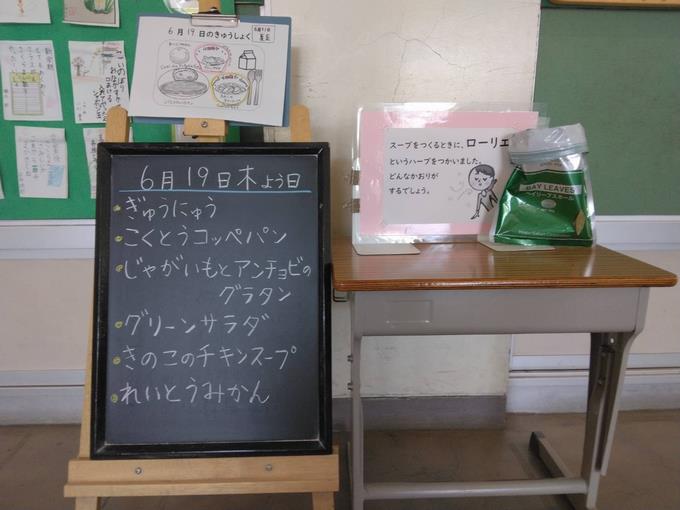 6月19日のきゅうしょく
6月19日木よう日
ぎゅうにゅう
こくとうコッペパン
じゃがいもとアンチョビの
グラタン
グリーンサラダ
きのこのチキンスープ
れいとうみかん
スープをつくるときに、ローリエ
というハーブをつかいました。
どんなかおりが
するでしょう。
BAY LEAVES
ベイリーブスホール